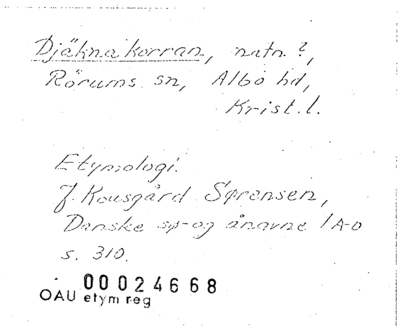 Djäknakorran, natn?,
Rörums sn, Albo hd,
Krist. l.
Etymologi.
J. Kousgård Sørensen,
Danske sø- og ånavne 1 A-D
s. 310.
00024668
OAU etym reg